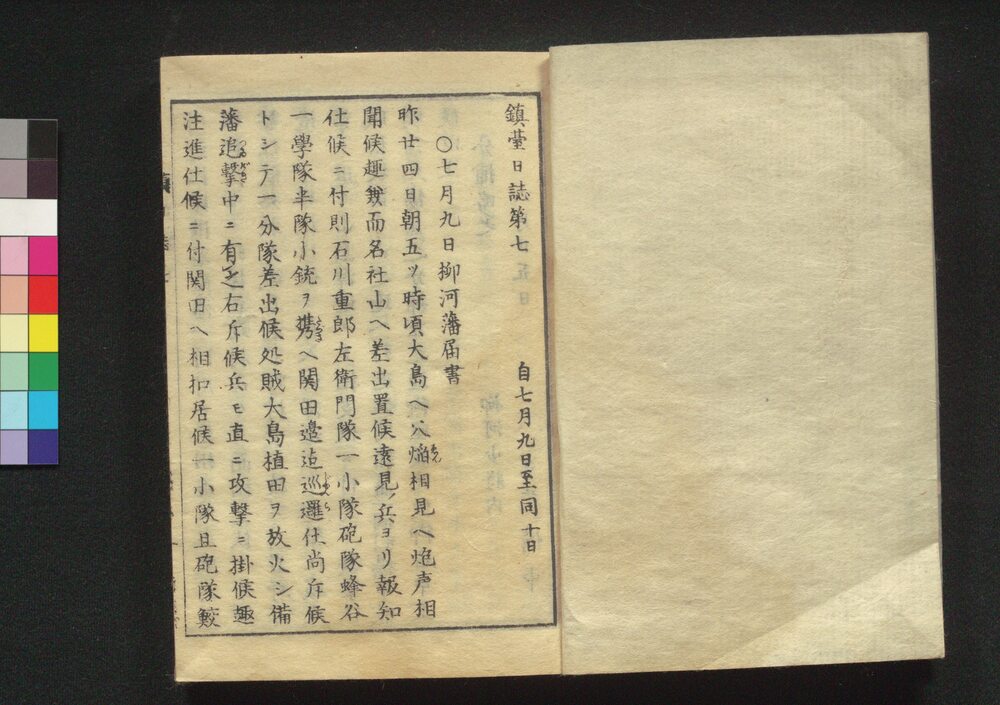 鎮臺日誌第七 自七月九日至同十日
○七月九日柳河藩届書
昨廿四日朝五ツ時頃大島ヘ火焔相見ヘ炮声相
聞候趣兼而名社山ヘ差出置候遠見ノ兵ヨリ報知
仕候ニ付則石川重郎左衛門隊一小隊砲隊蜂谷
一學隊半隊小銃ヲ携ヘ関田邉迠巡邏仕尚斥候
トシテ一分隊差出候処賊大島植田ヲ放火シ備
藩追撃中ニ有之右斥候兵モ直ニ攻撃ニ掛候趣
注進仕候ニ付関田ヘ相扣居候一小隊且砲隊鮫